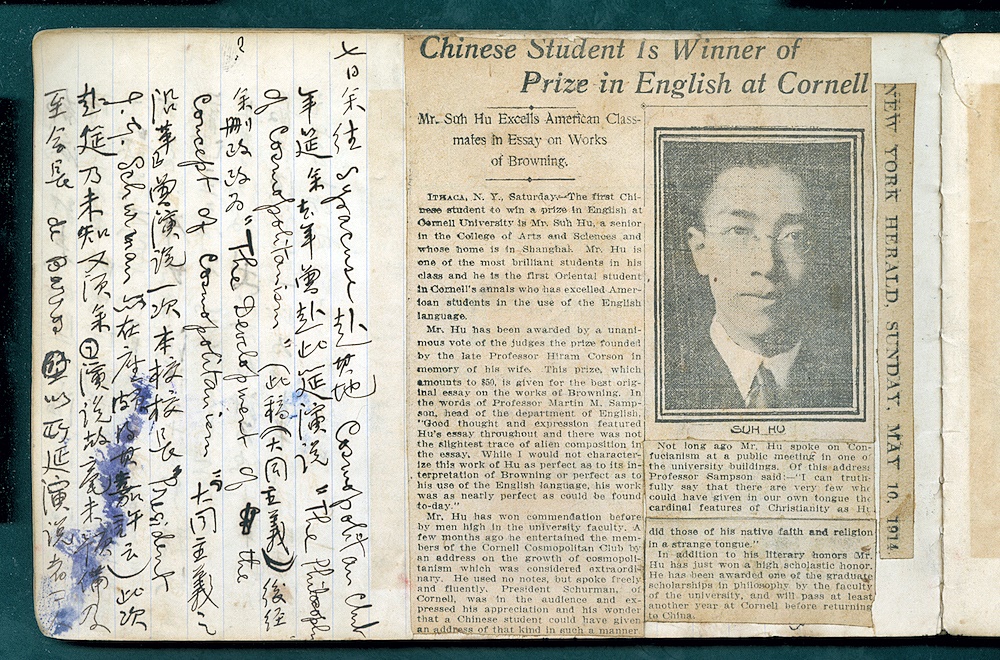 七日余往 Syracuse 赴其地 Cosmopolitan Club
年筵余去年曾赴此筵演说 "The Philosophy
of Cosmopolitanism" (此稿(大同主義)後经
余删改改为 "The Development of the
Concept of Cosmopolitanism" 大同主義之
沿革曾演说一次本校校长 President
Schurman 在座其嘉许云)此次
赴筵乃未知又须余演说故毫未预備及
至会长 以 延演说者
?
Chinese Student Is Winner of
Prize in English at Cornell
Mr. Suh Hu Excells American Class-
mates in Essay on Works
of Browning.
ITHACA, N. Y., Saturday.—The first Chi-
nese student to win a prize in English at
Cornell University is Mr. Suh Hu, a senior
in the College of Arts and Sciences and
whose home is in Shanghai. Mr. Hu is
one of the most brilliant students in his
class and he is the first Oriental student
in Cornell's annals who has excelled Amer-
ican students in the use of the English
language.
Mr. Hu has been awarded by a unani-
mous vote of the judges the prize founded
by the late Professor Hiram Corson in
memory of his wife. This prize, which
amounts to $50, is given for the best orig-
inal essay on the works of Browning. In
the words of Professor Martin M. Samp-
son, head of the department of English,
"Good thought and expression featured
Hu's essay throughout and there was not
the slightest trace of alien composition in
the essay. While I would not character-
ize this work of Hu as perfect as to its in-
terpretation of Browning or perfect as to
his use of the English language, his work
was as nearly perfect as could be found
to-day."
Mr. Hu has won commendation before
by men high in the university faculty. A
few months ago he entertained the mem-
bers of the Cornell Cosmopolitan Club by
an address on the growth of cosmopoli-
tanism which was considered extraordi-
nary. He used no notes, but spoke freely
and fluently. President Schurman, of
Cornell, was in the audience and ex-
pressed his appreciation and his wonder
that a Chinese student could have given
an address of that kind in such a manner.
SUH HU
Not long ago Mr. Hu spoke on Con-
fucianism at a public meeting in one of
the university buildings. Of this address
Professor Sampson said:—"I can truth-
fully say that there are very few who
could have given in our own tongue the
cardinal features of Christianity as Hu
did those of his native faith and religion
in a strange tongue."
In addition to his literary honors Mr.
Hu has just won a high scholastic honor.
He has been awarded one of the graduate
scholarships in philosophy by the faculty
of the university, and will pass at least
another year at Cornell before returning
to China.
NEW YORK HERALD, SUNDAY, MAY 10, 1914